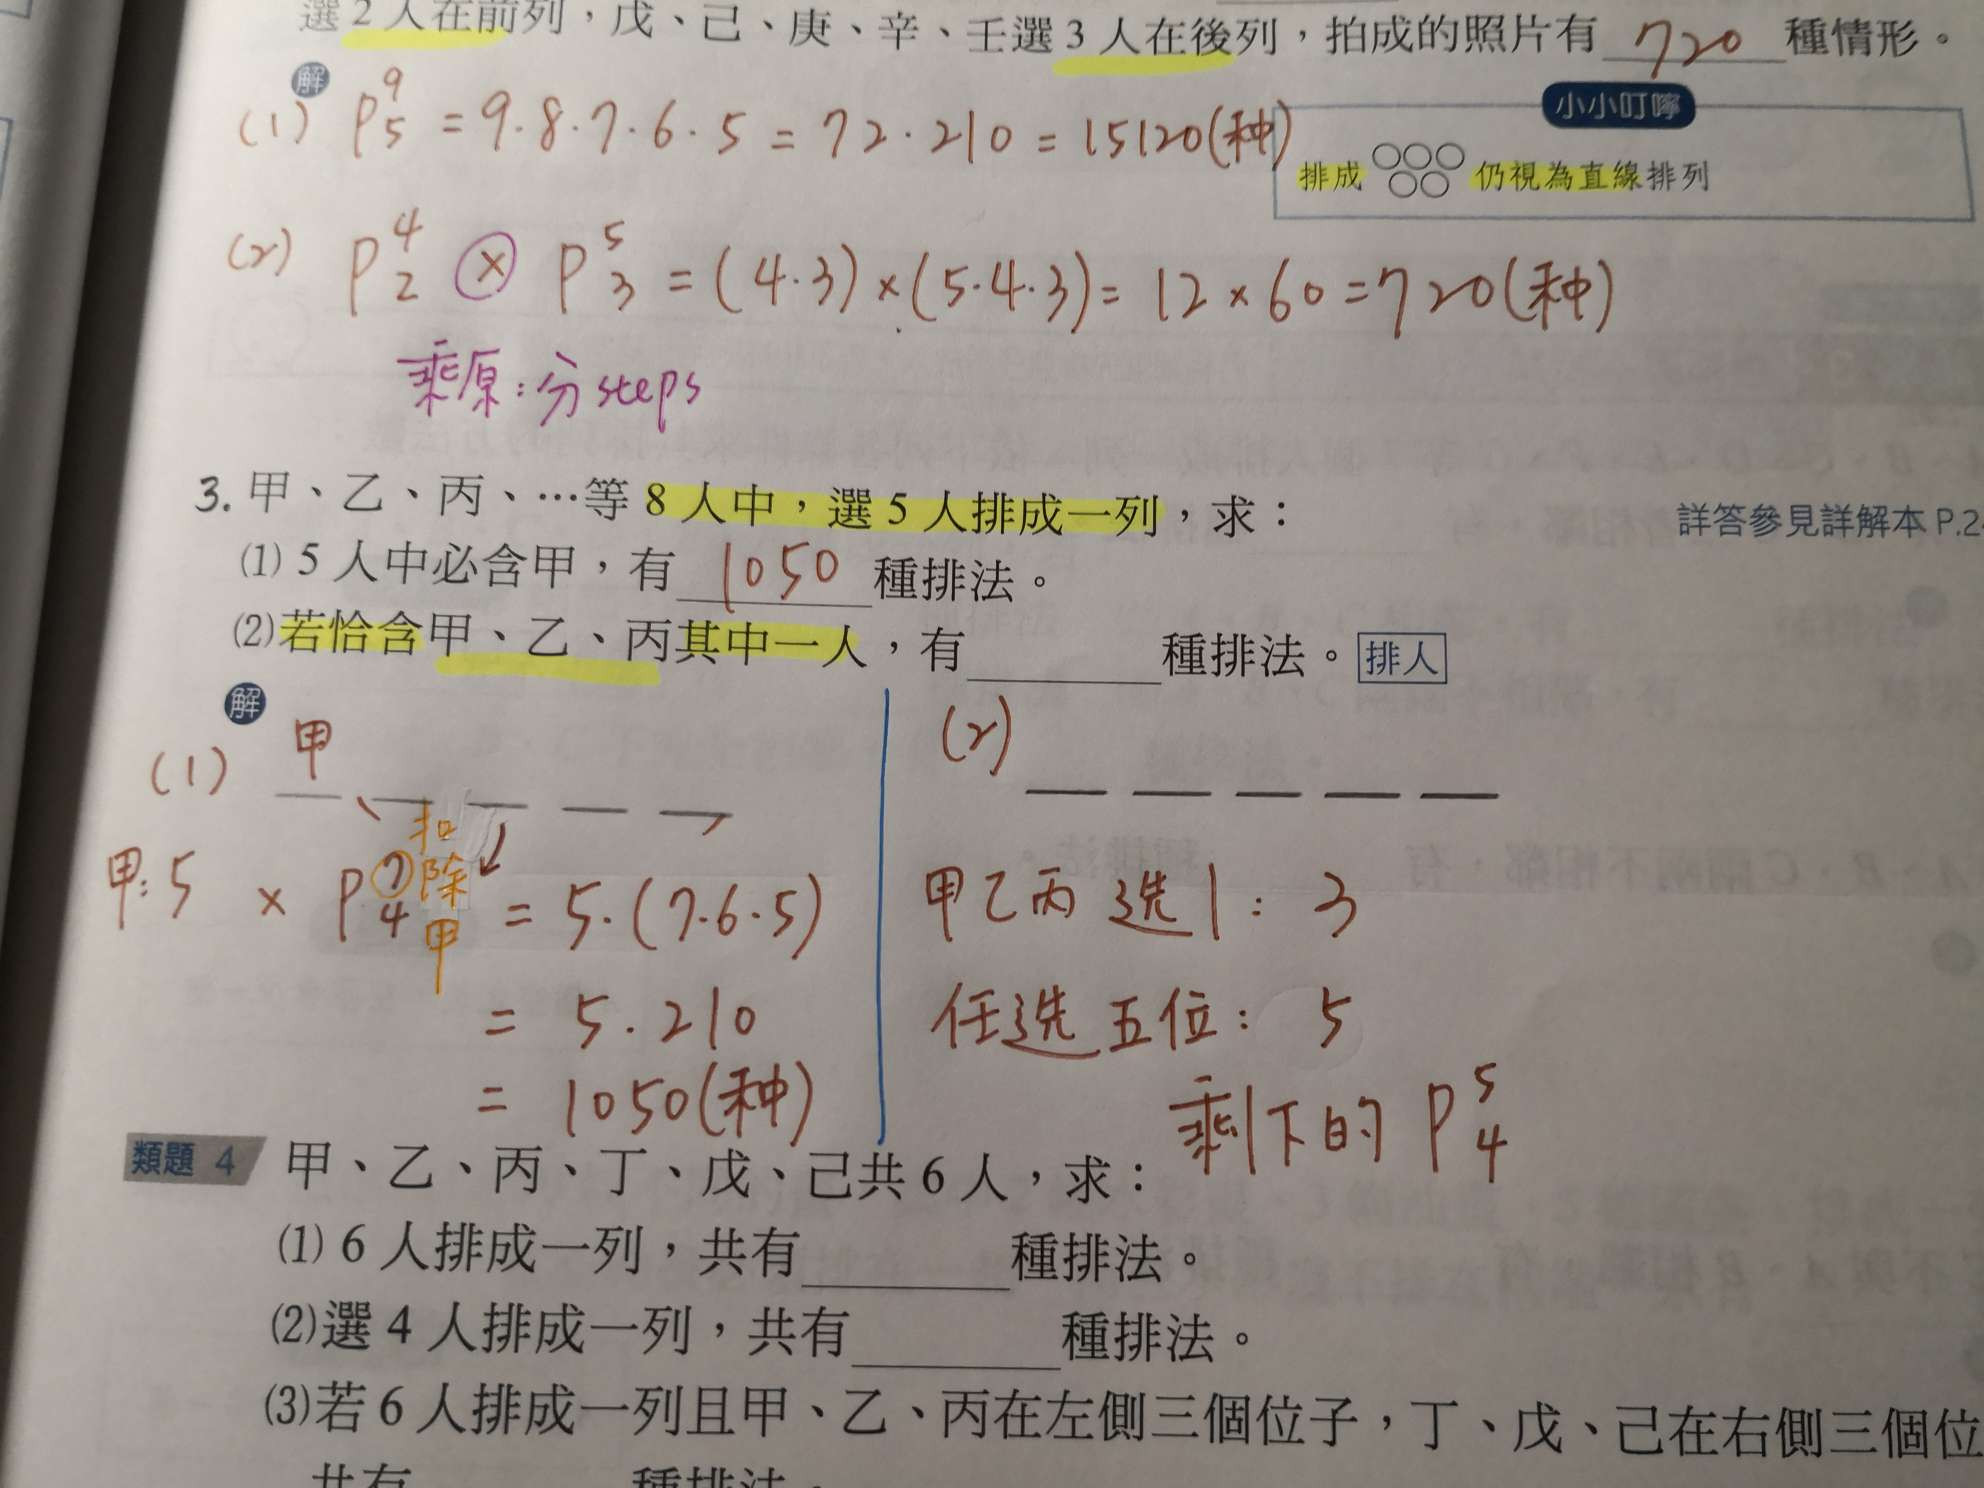 選2人在前列，戊、己、庚、辛、壬選3人在後列，拍成的照片有 720 種情形。
解
(1) P⁹₅ = 9·8·7·6·5 = 72·210 = 15120(种)
小小叮嚀
排成 ○○○○○ 仍視為直線排列
(2) P⁴₂ × P⁵₃ = (4·3)×(5·4·3) = 12×60 = 720(种)
乘原：分steps
3. 甲、乙、丙、…等8人中，選5人排成一列，求：
詳答參見詳解本 P.2
(1) 5人中必含甲，有 1050 種排法。
(2)若恰含甲、乙、丙其中一人，有______種排法。排人
解
(1) 甲
扣除甲
甲:5 × P⁷₄ = 5·(7·6·5)
= 5·210
= 1050(种)
(2)
甲乙丙选1: 3
任选五位: 5
剩下的 P⁵₄
類題 4 甲、乙、丙、丁、戊、己共6人，求：
(1) 6人排成一列，共有______種排法。
(2)選4人排成一列，共有______種排法。
(3)若6人排成一列且甲、乙、丙在左側三個位子，丁、戊、己在右側三個位
共有______種排法。